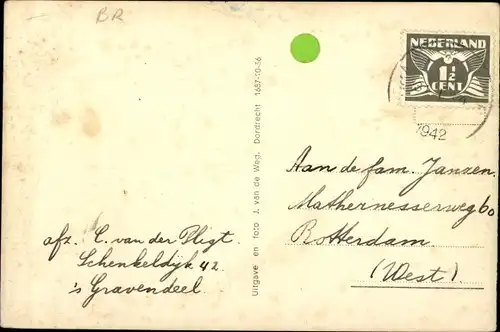 BR
NEDERLAND
1½
CENT
1942
Uitgave en foto J. van de Weg, Dordrecht 1687-10-36
Aan de fam. Janzen.
Mathernesserweg 60
Rotterdam
(West).
afz. C. van der Pligt.
Schenkeldijk 42
's Gravendeel.